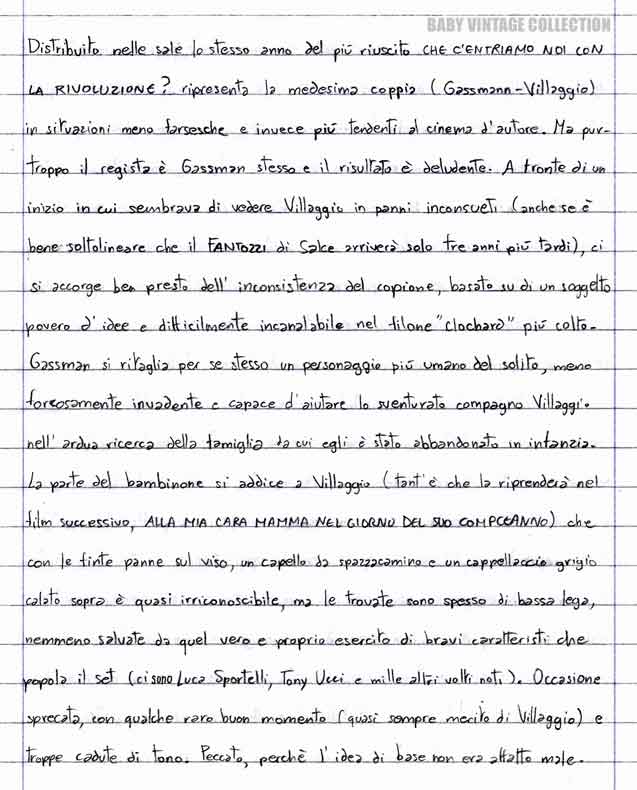 BABY VINTAGE COLLECTION
Distribuito nelle sale lo stesso anno del più riuscito CHE C'ENTRIAMO NOI CON
LA RIVOLUZIONE? ripresenta la medesima coppia (Gassmann-Villaggio)
in situazioni meno farsesche e invece più tendenti al cinema d'autore. Ma pur-
troppo il regista è Gassman stesso e il risultato è deludente. A fronte di un
inizio in cui sembrava di vedere Villaggio in panni inconsueti (anche se è
bene sottolineare che il FANTOZZI di Salce arriverà solo tre anni più tardi), ci
si accorge ben presto dell'inconsistenza del copione, basato su di un soggetto
povero d'idee e difficilmente incanalabile nel filone "clochard" più colto.
Gassman si ritaglia per se stesso un personaggio più umano del solito, meno
forzosamente invadente e capace d'aiutare lo sventurato compagno Villaggio
nell'ardua ricerca della famiglia da cui egli è stato abbandonato in infanzia.
La parte del bambinone si addice a Villaggio (tant'è che la riprenderà nel
film successivo, ALLA MIA CARA MAMMA NEL GIORNO DEL SUO COMPLEANNO) che
con le finte panne sul viso, un capello da spazzacamino e un cappellaccio grigio
calato sopra è quasi irriconoscibile, ma le trovate sono spesso di bassa lega,
nemmeno salvate da quel vero e proprio esercito di bravi caratteristi che
popola il set (ci sono Luca Sportelli, Tony Ucci e mille altri volti noti). Occasione
sprecata, con qualche raro buon momento (quasi sempre merito di Villaggio) e
troppe cadute di tono. Peccato, perchè l'idea di base non era affatto male.